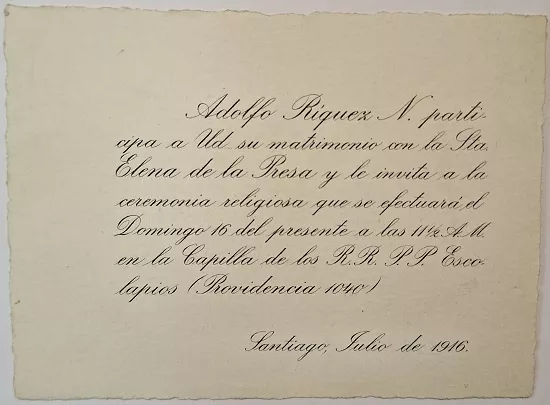 Adolfo Ríquez N. parti-
cipa a Ud su matrimonio con la Sta
Elena de la Presa y le invita a la
ceremonia religiosa que se efectuará el
Domingo 16 del presente a las 11½ A.M.
en la Capilla de los R.R. P.P. Esco-
lapios (Providencia 1040)
Santiago, Julio de 1916.